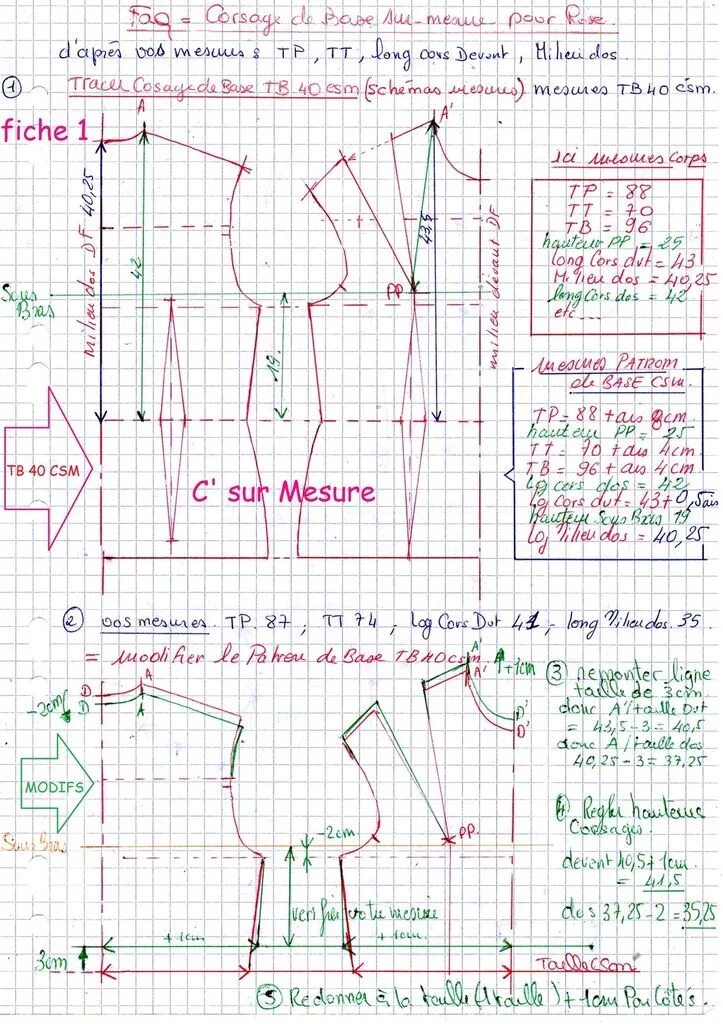 FaQ = Corsage de Base sur-mesure pour Rose.
d'après vos mesures TP, TT, long cors Devant, Milieu dos.
① Tracer Cosage de Base TB 40 csm (schémas mesures) mesures TB 40 csm.
fiche 1
A
A'
ici mesures corps
TP = 88
TT = 70
TB = 96
hauteur PP = 25
long Cors dvt = 43
Milieu dos = 40,25
long Cors dos = 42
etc...
milieu dos DF 40,25
42
43,5
milieu devant DF
PP
Sous Bras
19.
mesures PATROM
de BASE CSM.
TP = 88 + ais 8cm
hauteur PP = 25
TT = 70 + ais 4cm
TB = 96 + ais 4cm
Lg cors dos = 42
Lg cors dvt = 43 + 0,5 ais
hauteur Sous Bras 19
Lg Milieu dos = 40,25
TB 40 CSM
C' sur Mesure
② vos mesures. TP. 87, TT 74, log Cors Dvt 41, - long Milieu dos. 35
= modifier le Patron de Base TB 40 csm.
-2cm
D
D
A
A
A'
A'
+1cm
D'
D'
③ remonter ligne
taille de 3cm.
donc A'/taille Dvt
= 43,5 - 3 = 40,5
donc A/taille dos
40,25 - 3 = 37,25
MODIFS
④ Régler hauteurs
Corsages.
devant 40,5 + 1cm
= 41,5
dos 37,25 - 2 = 35,25
Sous Bras
-2cm
PP.
verifier votre mesure
+1cm
+1cm
3cm
Taille CSM
⑤ Redonner à la taille (1 taille) + 1cm Par Côtés.